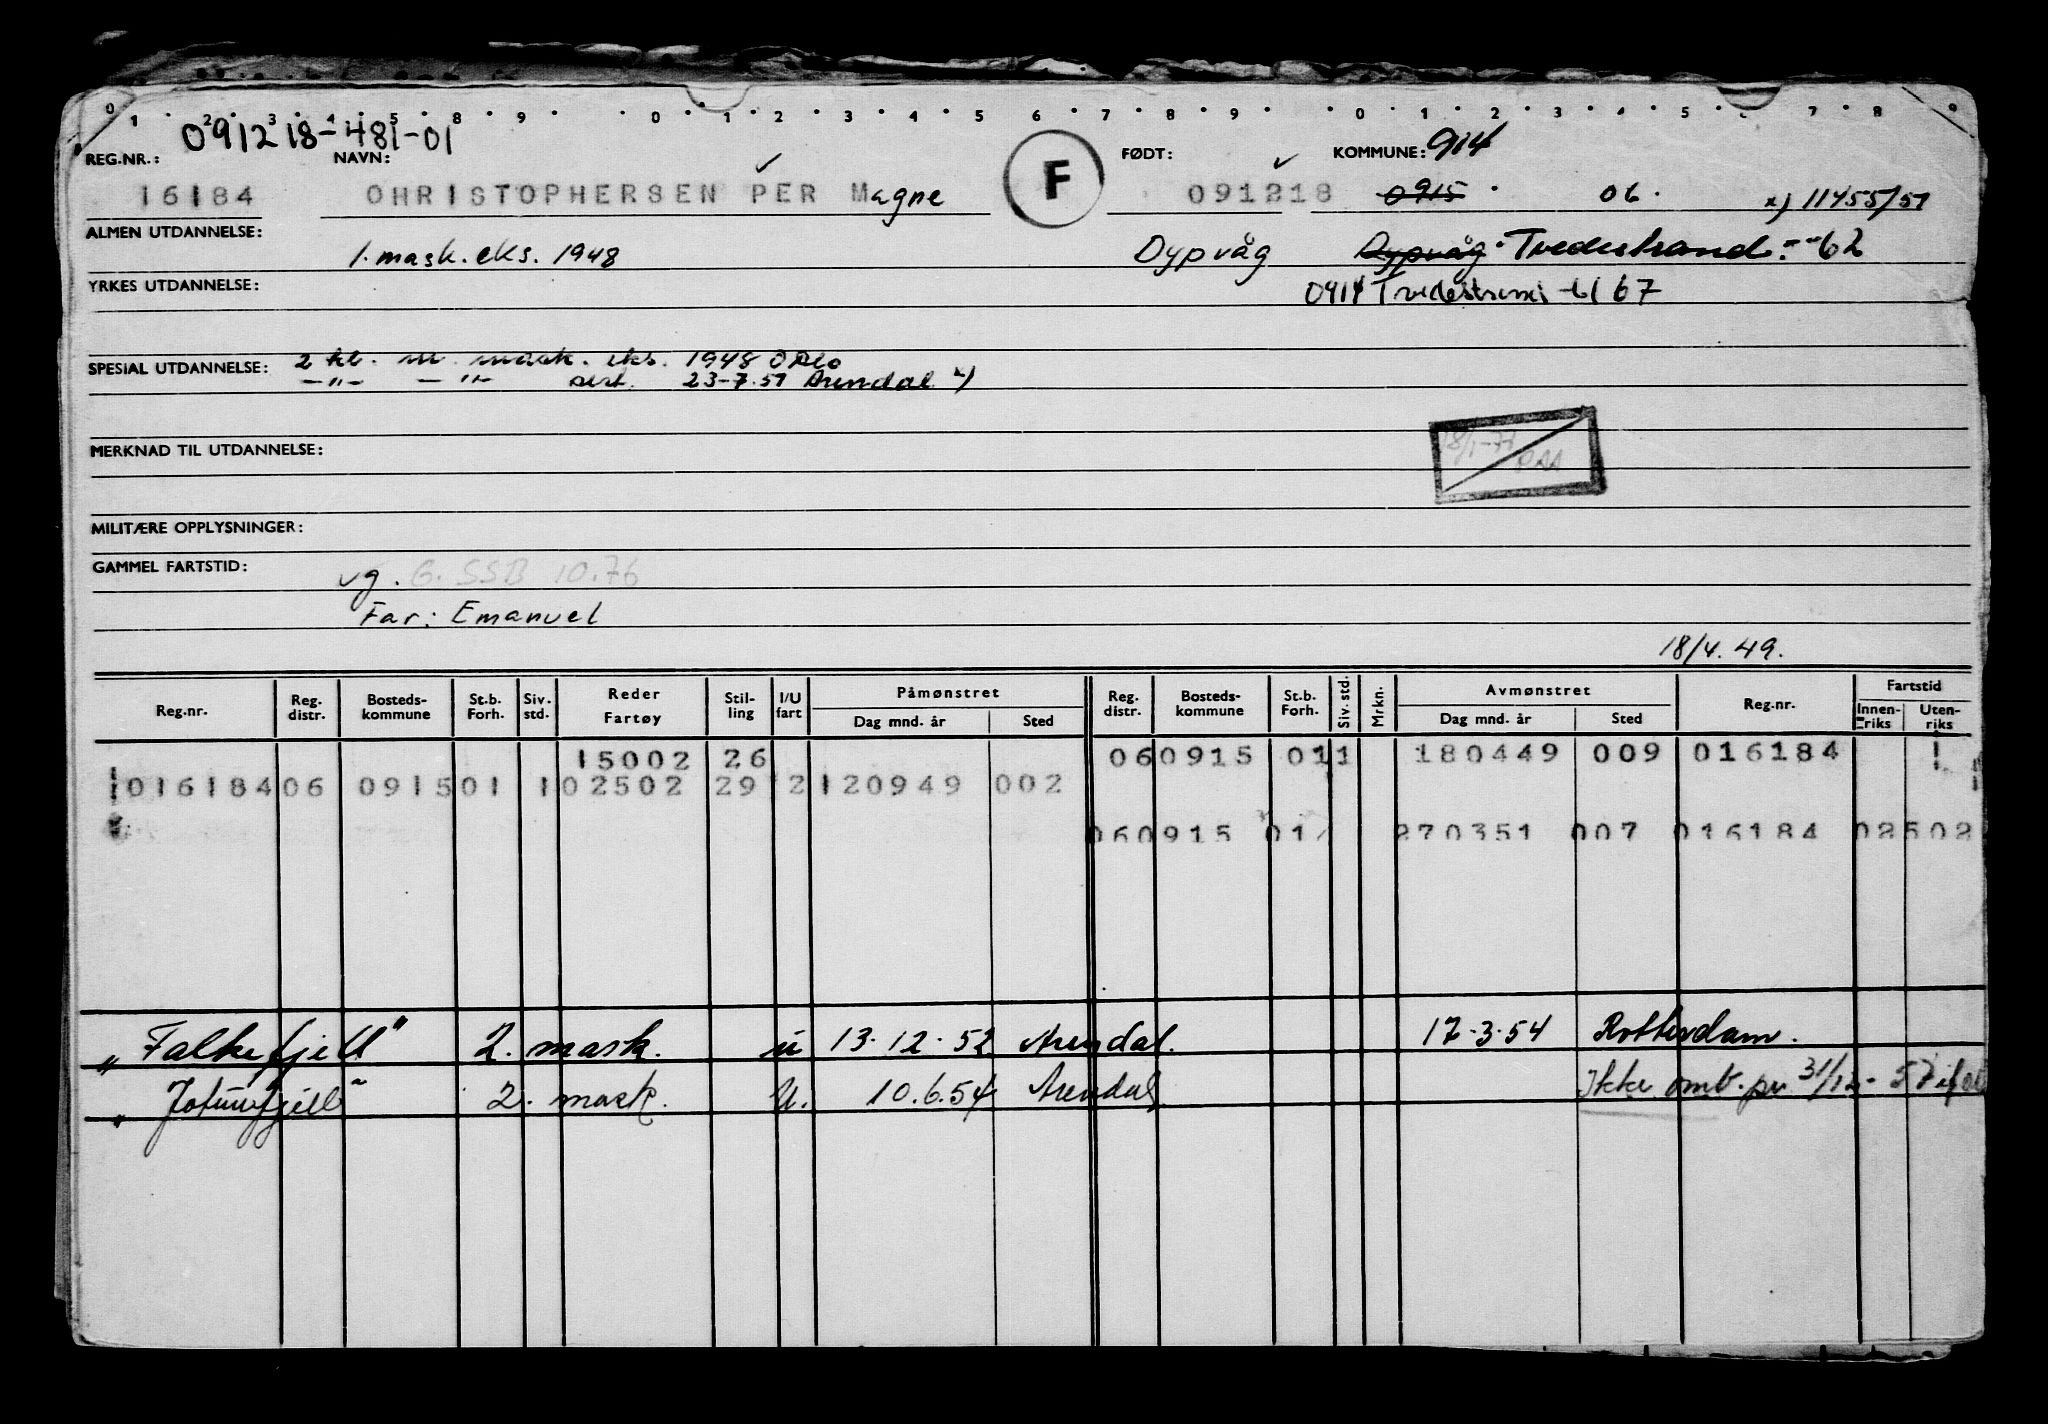 0 1 2 3 4 5 8 9 0 1 2 3 4 5 6 7 8 9 0 1 2 3 4 5 7 8 9
091218-481-01
REG.NR.: NAVN: FØDT: KOMMUNE: 914
16184 OHRISTOPHERSEN PER Magne F 091218 0915 06. x) 11455/51
ALMEN UTDANNELSE: 1. mask. eks. 1948 Dypvåg Dypvåg Tvedestrand. -62
YRKES UTDANNELSE: 0914 Tvedestrand 67
SPESIAL UTDANNELSE: 2 kl. m. mask. eks. 1948 Oslo
-"- -"- sert. 23-7.51 Arendal x)
MERKNAD TIL UTDANNELSE: 18/1-77
MILITÆRE OPPLYSNINGER:
GAMMEL FARTSTID: vg. G. SSB 10.76
Far: Emanuel
18/4.49.
Reg.nr. Reg. distr. Bosteds- kommune St.b. Forh. Siv. std. Reder Fartøy Stil- ling I/U fart Påmønstret Dag mnd. år Sted Reg. distr. Bosteds- kommune St.b. Forh. Siv. std. Mrkn. Avmønstret Dag mnd. år Sted Reg.nr. Fartstid Innen- riks Uten- riks
15002 26 060915 011 180449 009 016184 1
016184 06 0915 01 1 02502 29 2 120949 002
060915 01 270351 007 016184 02502
"Falkefjell" 2. mask. u 13.12.52 Arendal. 17.3.54 Rotterdam.
"Jotunfjell" 2. mask. U. 10.6.54 Arendal Ikke omb. pr 31/12-57